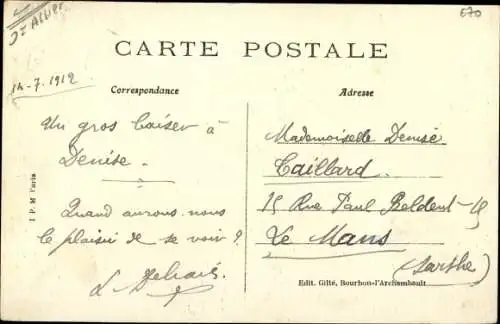 St Albert
E70
CARTE POSTALE
14-7.1912
Correspondance
Adresse
Un gros baiser à
Denise.
Quand aurons-nous
le plaisir de se voir ?
Mademoiselle Denise
Caillard
15 Rue Paul Beldent-15
Le Mans
(Sarthe)
Edit. Gilté, Bourbon-l'Archambault
I P. M Paris